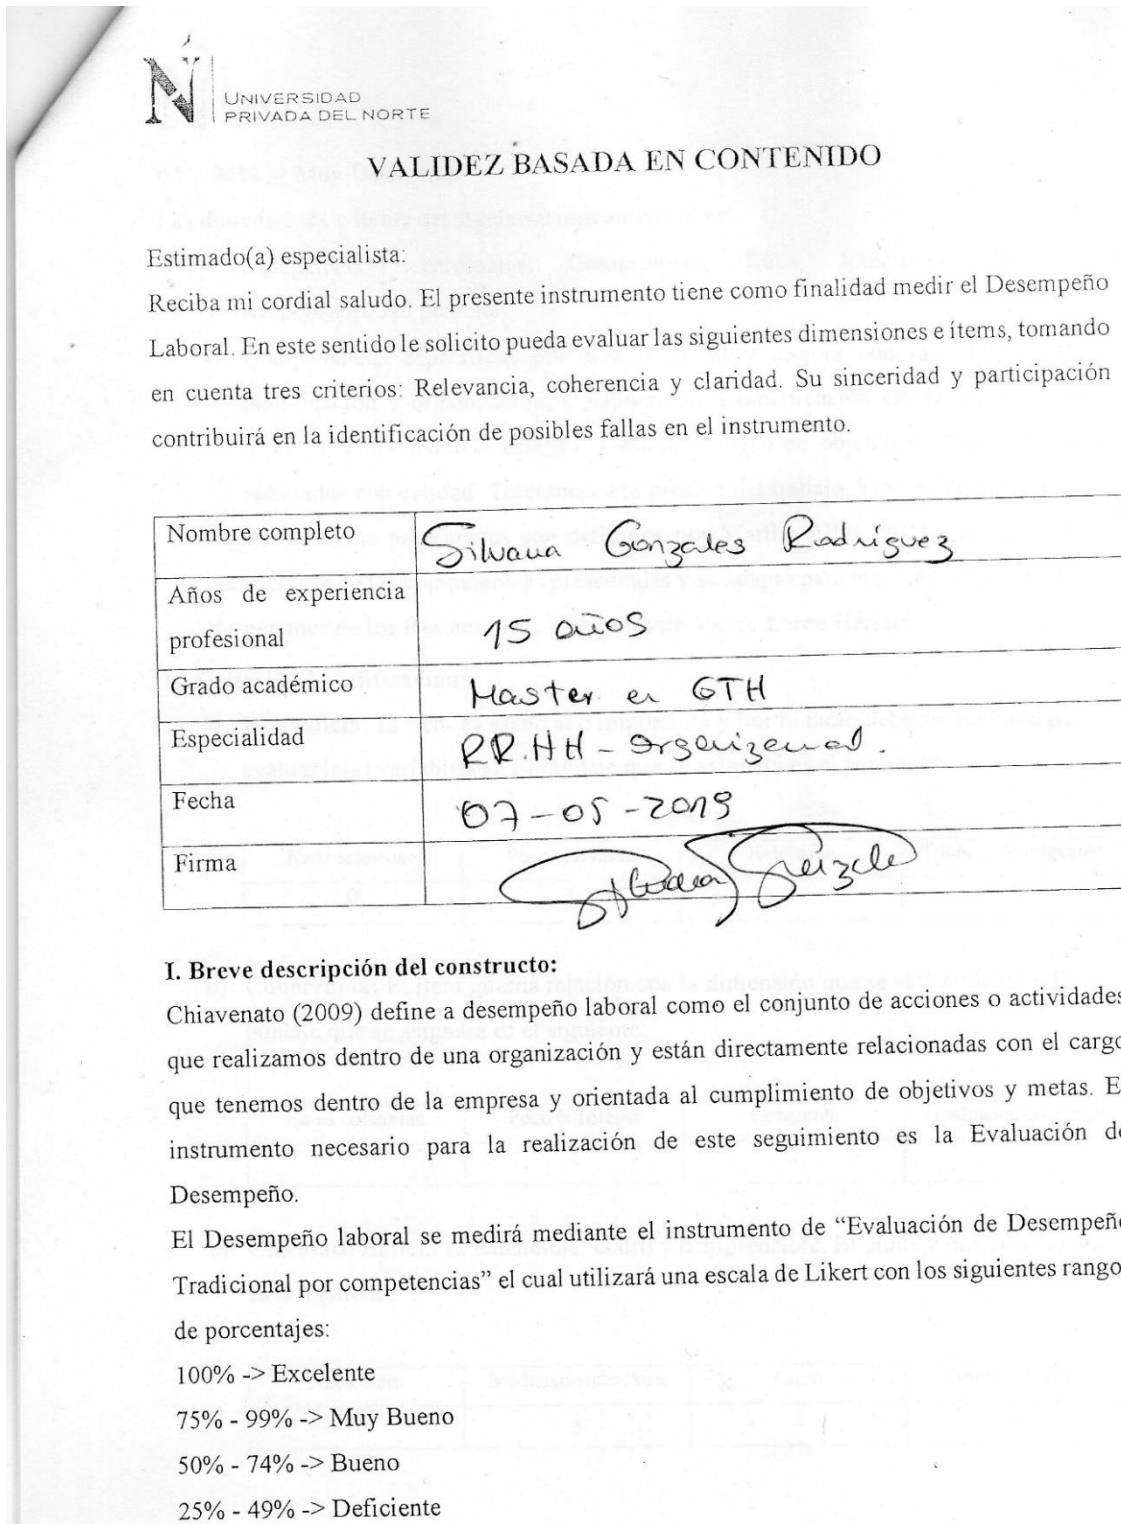 UNIVERSIDAD
PRIVADA DEL NORTE
VALIDEZ BASADA EN CONTENIDO
Estimado(a) especialista:
Reciba mi cordial saludo. El presente instrumento tiene como finalidad medir el Desempeño
Laboral. En este sentido le solicito pueda evaluar las siguientes dimensiones e ítems, tomando
en cuenta tres criterios: Relevancia, coherencia y claridad. Su sinceridad y participación
contribuirá en la identificación de posibles fallas en el instrumento.
Nombre completo Silvana Gonzales Rodríguez
Años de experiencia
profesional 15 años
Grado académico Master en GTH
Especialidad RR.HH - Organizacional.
Fecha 07-05-2019
Firma
I. Breve descripción del constructo:
Chiavenato (2009) define a desempeño laboral como el conjunto de acciones o actividades
que realizamos dentro de una organización y están directamente relacionadas con el cargo
que tenemos dentro de la empresa y orientada al cumplimiento de objetivos y metas. E
instrumento necesario para la realización de este seguimiento es la Evaluación de
Desempeño.
El Desempeño laboral se medirá mediante el instrumento de “Evaluación de Desempeño
Tradicional por competencias” el cual utilizará una escala de Likert con los siguientes rango
de porcentajes:
100% -> Excelente
75% - 99% -> Muy Bueno
50% - 74% -> Bueno
25% - 49% -> Deficiente